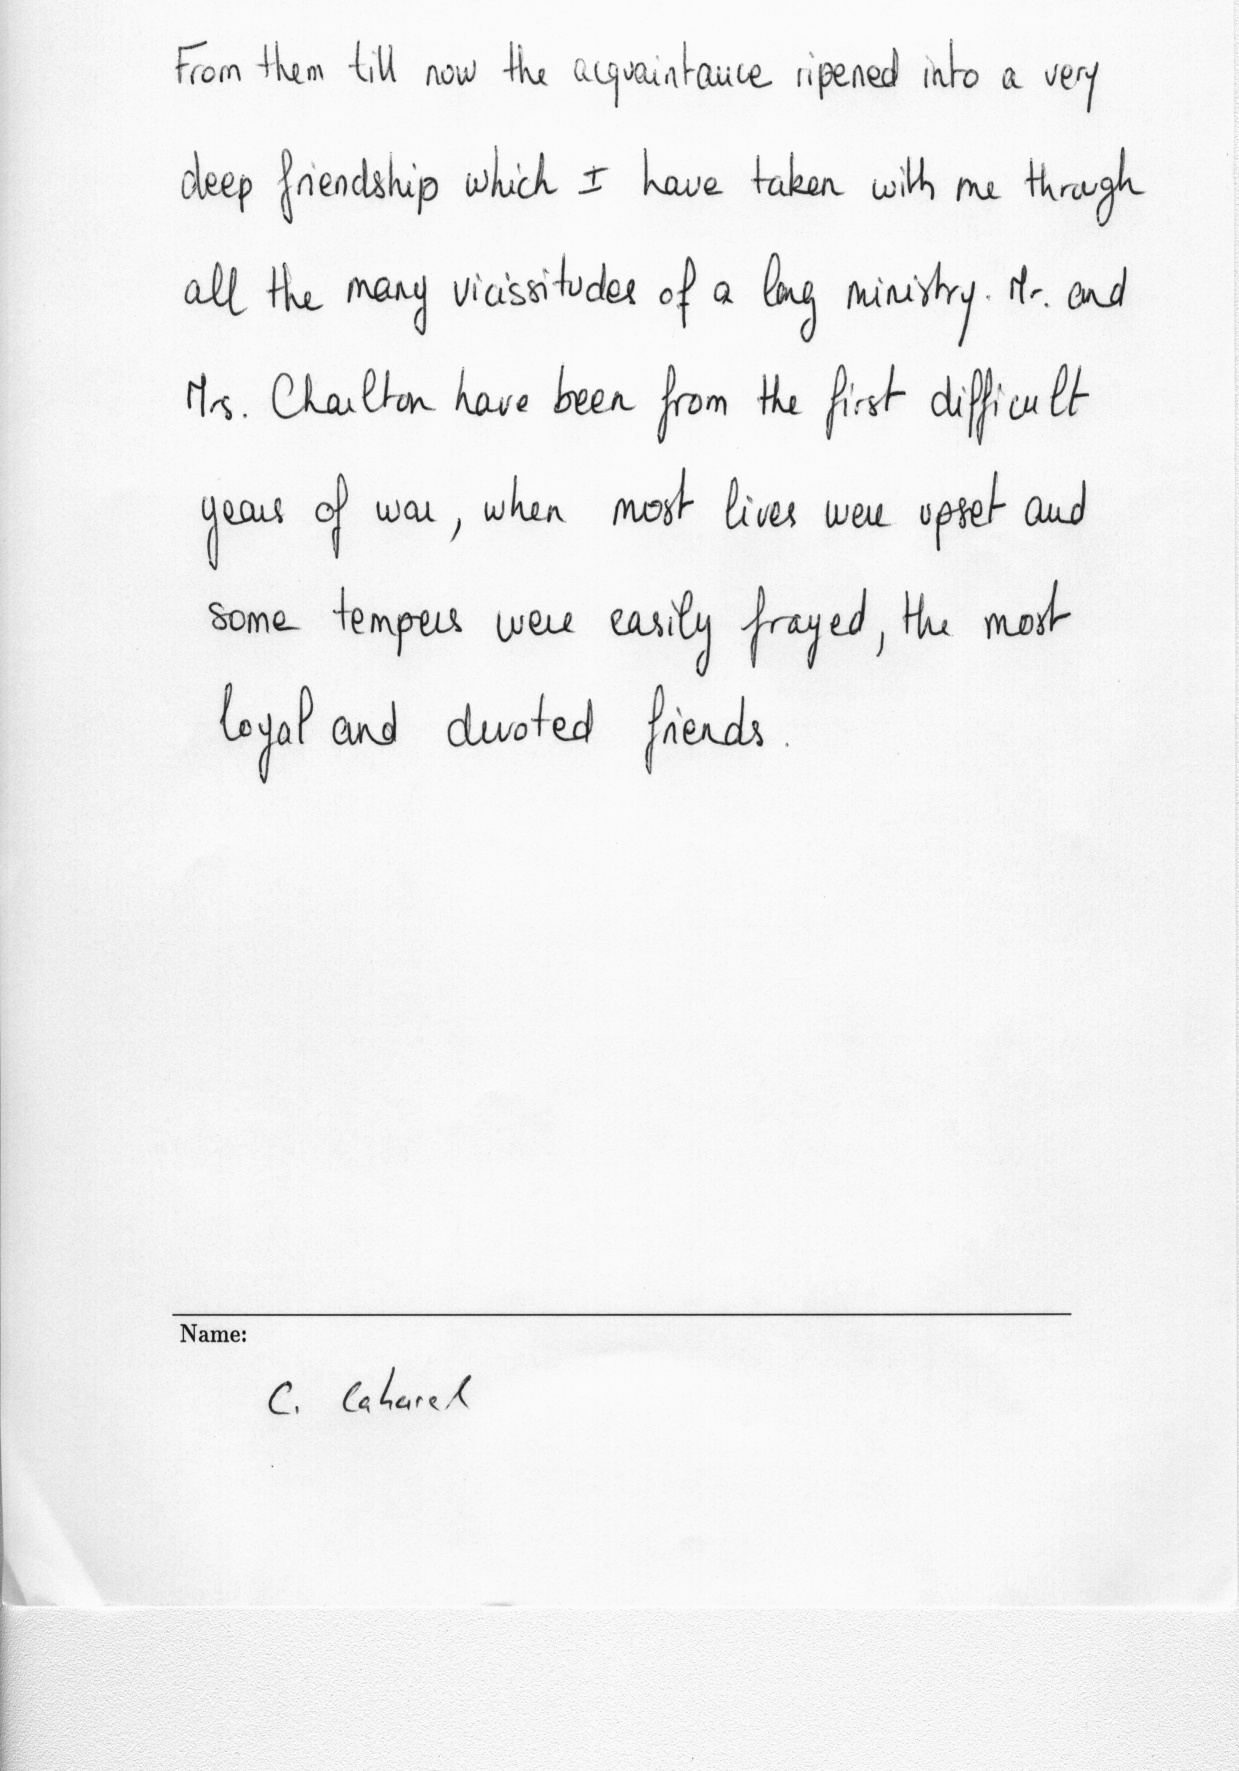 From them till now the acquaintance ripened into a very
deep friendship which I have taken with me through
all the many vicissitudes of a long ministry. Mr. and
Mrs. Charlton have been from the first difficult
years of war, when most lives were upset and
some tempers were easily frayed, the most
loyal and devoted friends.
Name:
C.